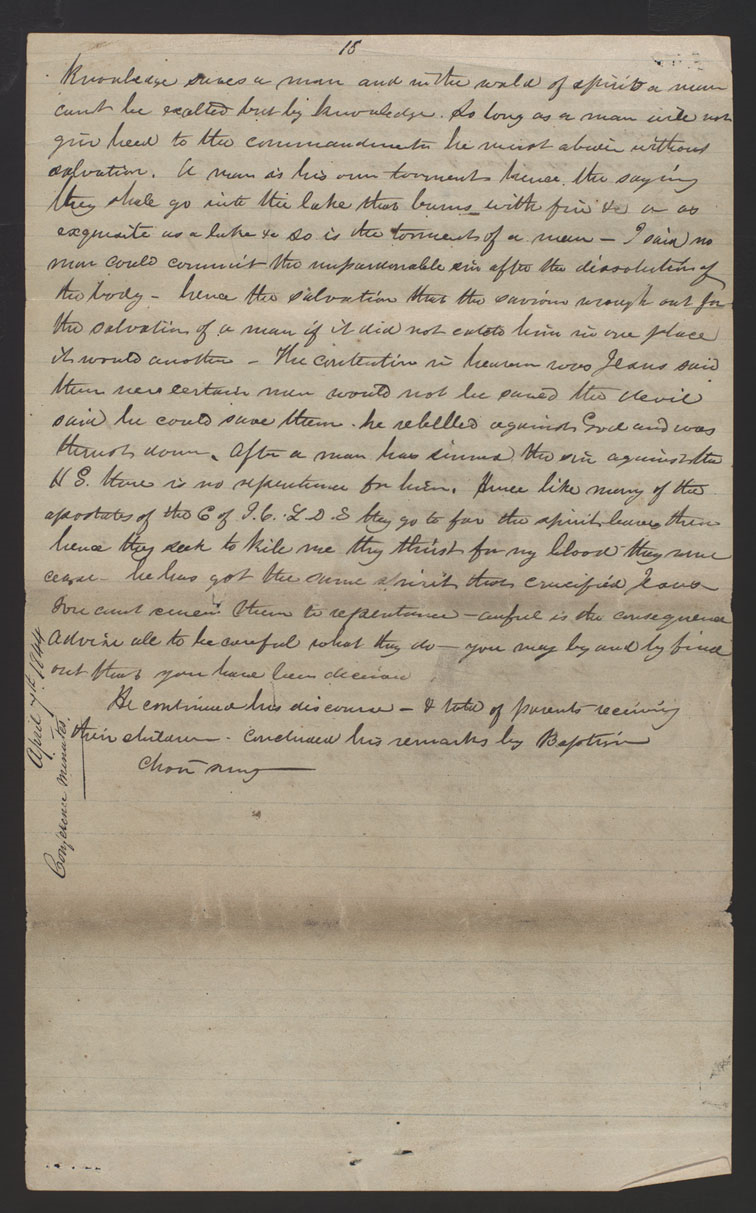 18
knowledge saves a man and in the world of spirits a man
cant be exalted but by knowledge. So long as a man will not
give heed to the commandments he must abide without
salvation. A man is his own torment hence the saying
they shall go into the lake that burns with fire &c as
exquisite as a lake &c so is the torments of a man – I said no
man could commit the unpardonable sin after the dissolution of
the body – hence the salvation that the saviour wrough out for
the salvation of a man if it did not catch him in one place
it would another – The contention in heaven was Jesus said
there were certain men would not be saved the devil
said he could save them. he rebelled against God and was
thrust down. After a man has sinned the sin against the
H G. there is no repentance for him. Hence like many of the
apostates of the C of J. C. L. D. S they go to far the spirit leaves them
hence they seek to kill me they thirst for my blood they never
cease – he has got the same spirit that crucified Jesus
You cant renew them to repentance – awful is the consequence
Advise all to be careful what they do – you may by and by find
out that you have been deceived
He continued his discourse – & told of parents receiving
their children – concluded his remarks by Baptism
choir sung
April 7th. 1844
Conference minutes.